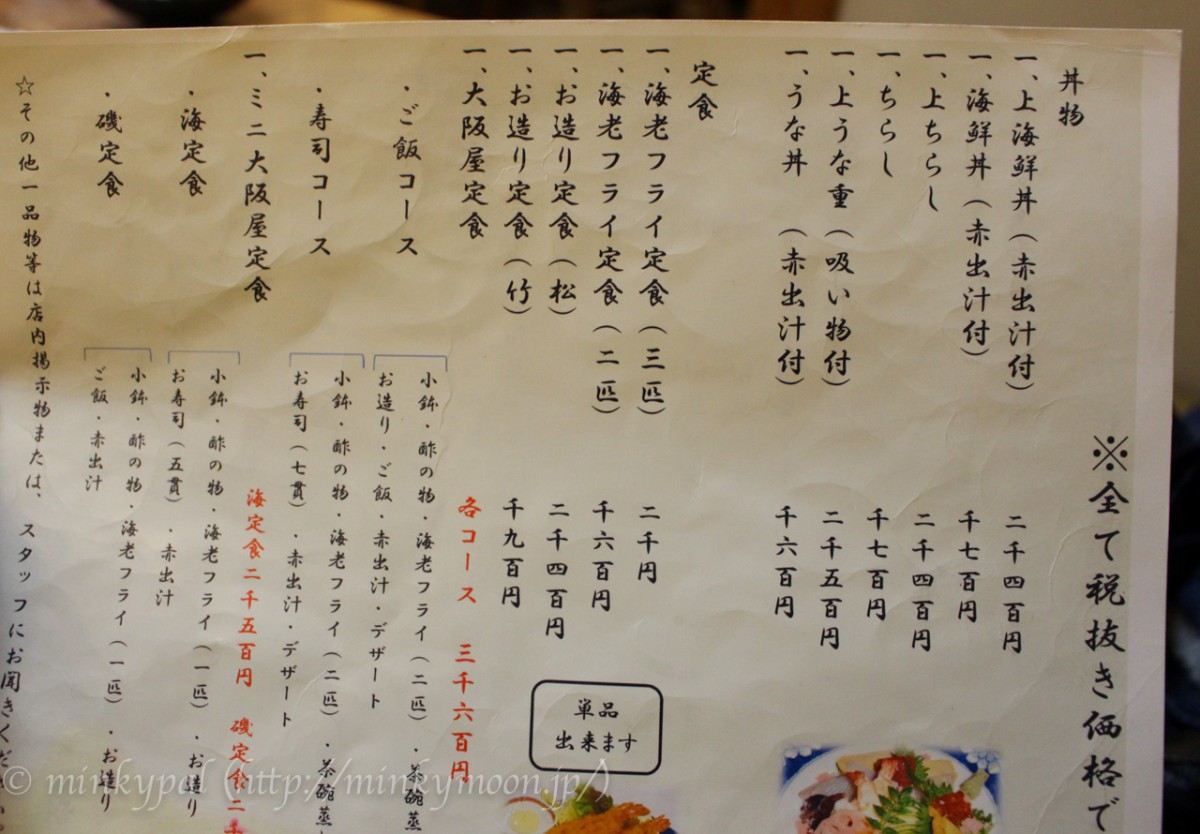 ※全て税抜き価格で
丼物
一、上海鮮丼(赤出汁付) 二千四百円
一、海鮮丼(赤出汁付) 千七百円
一、上ちらし 二千四百円
一、ちらし 千七百円
一、上うな重(吸い物付) 二千五百円
一、うな丼 (赤出汁付) 千六百円
定食
一、海老フライ定食(三匹) 二千円
一、海老フライ定食(二匹) 千六百円
一、お造り定食(松) 二千四百円
一、お造り定食(竹) 千九百円
一、大阪屋定食 各コース 三千六百円
・ご飯コース
小鉢・酢の物・海老フライ(二匹)・茶碗蒸
お造り・ご飯・赤出汁・デザート
・寿司コース
小鉢・酢の物・海老フライ(二匹)・茶碗蒸
お寿司(七貫)・赤出汁・デザート
一、ミニ大阪屋定食 海定食二千五百円 磯定食二千
・海定食
小鉢・酢の物・海老フライ(一匹)・お造り
お寿司(五貫)・赤出汁
・磯定食
小鉢・酢の物・海老フライ(一匹)・お造り
ご飯・赤出汁
☆その他一品物等は店内掲示物または、スタッフにお聞きください。
単品
出来ます
© minkypol (http://minkymoon.jp/)